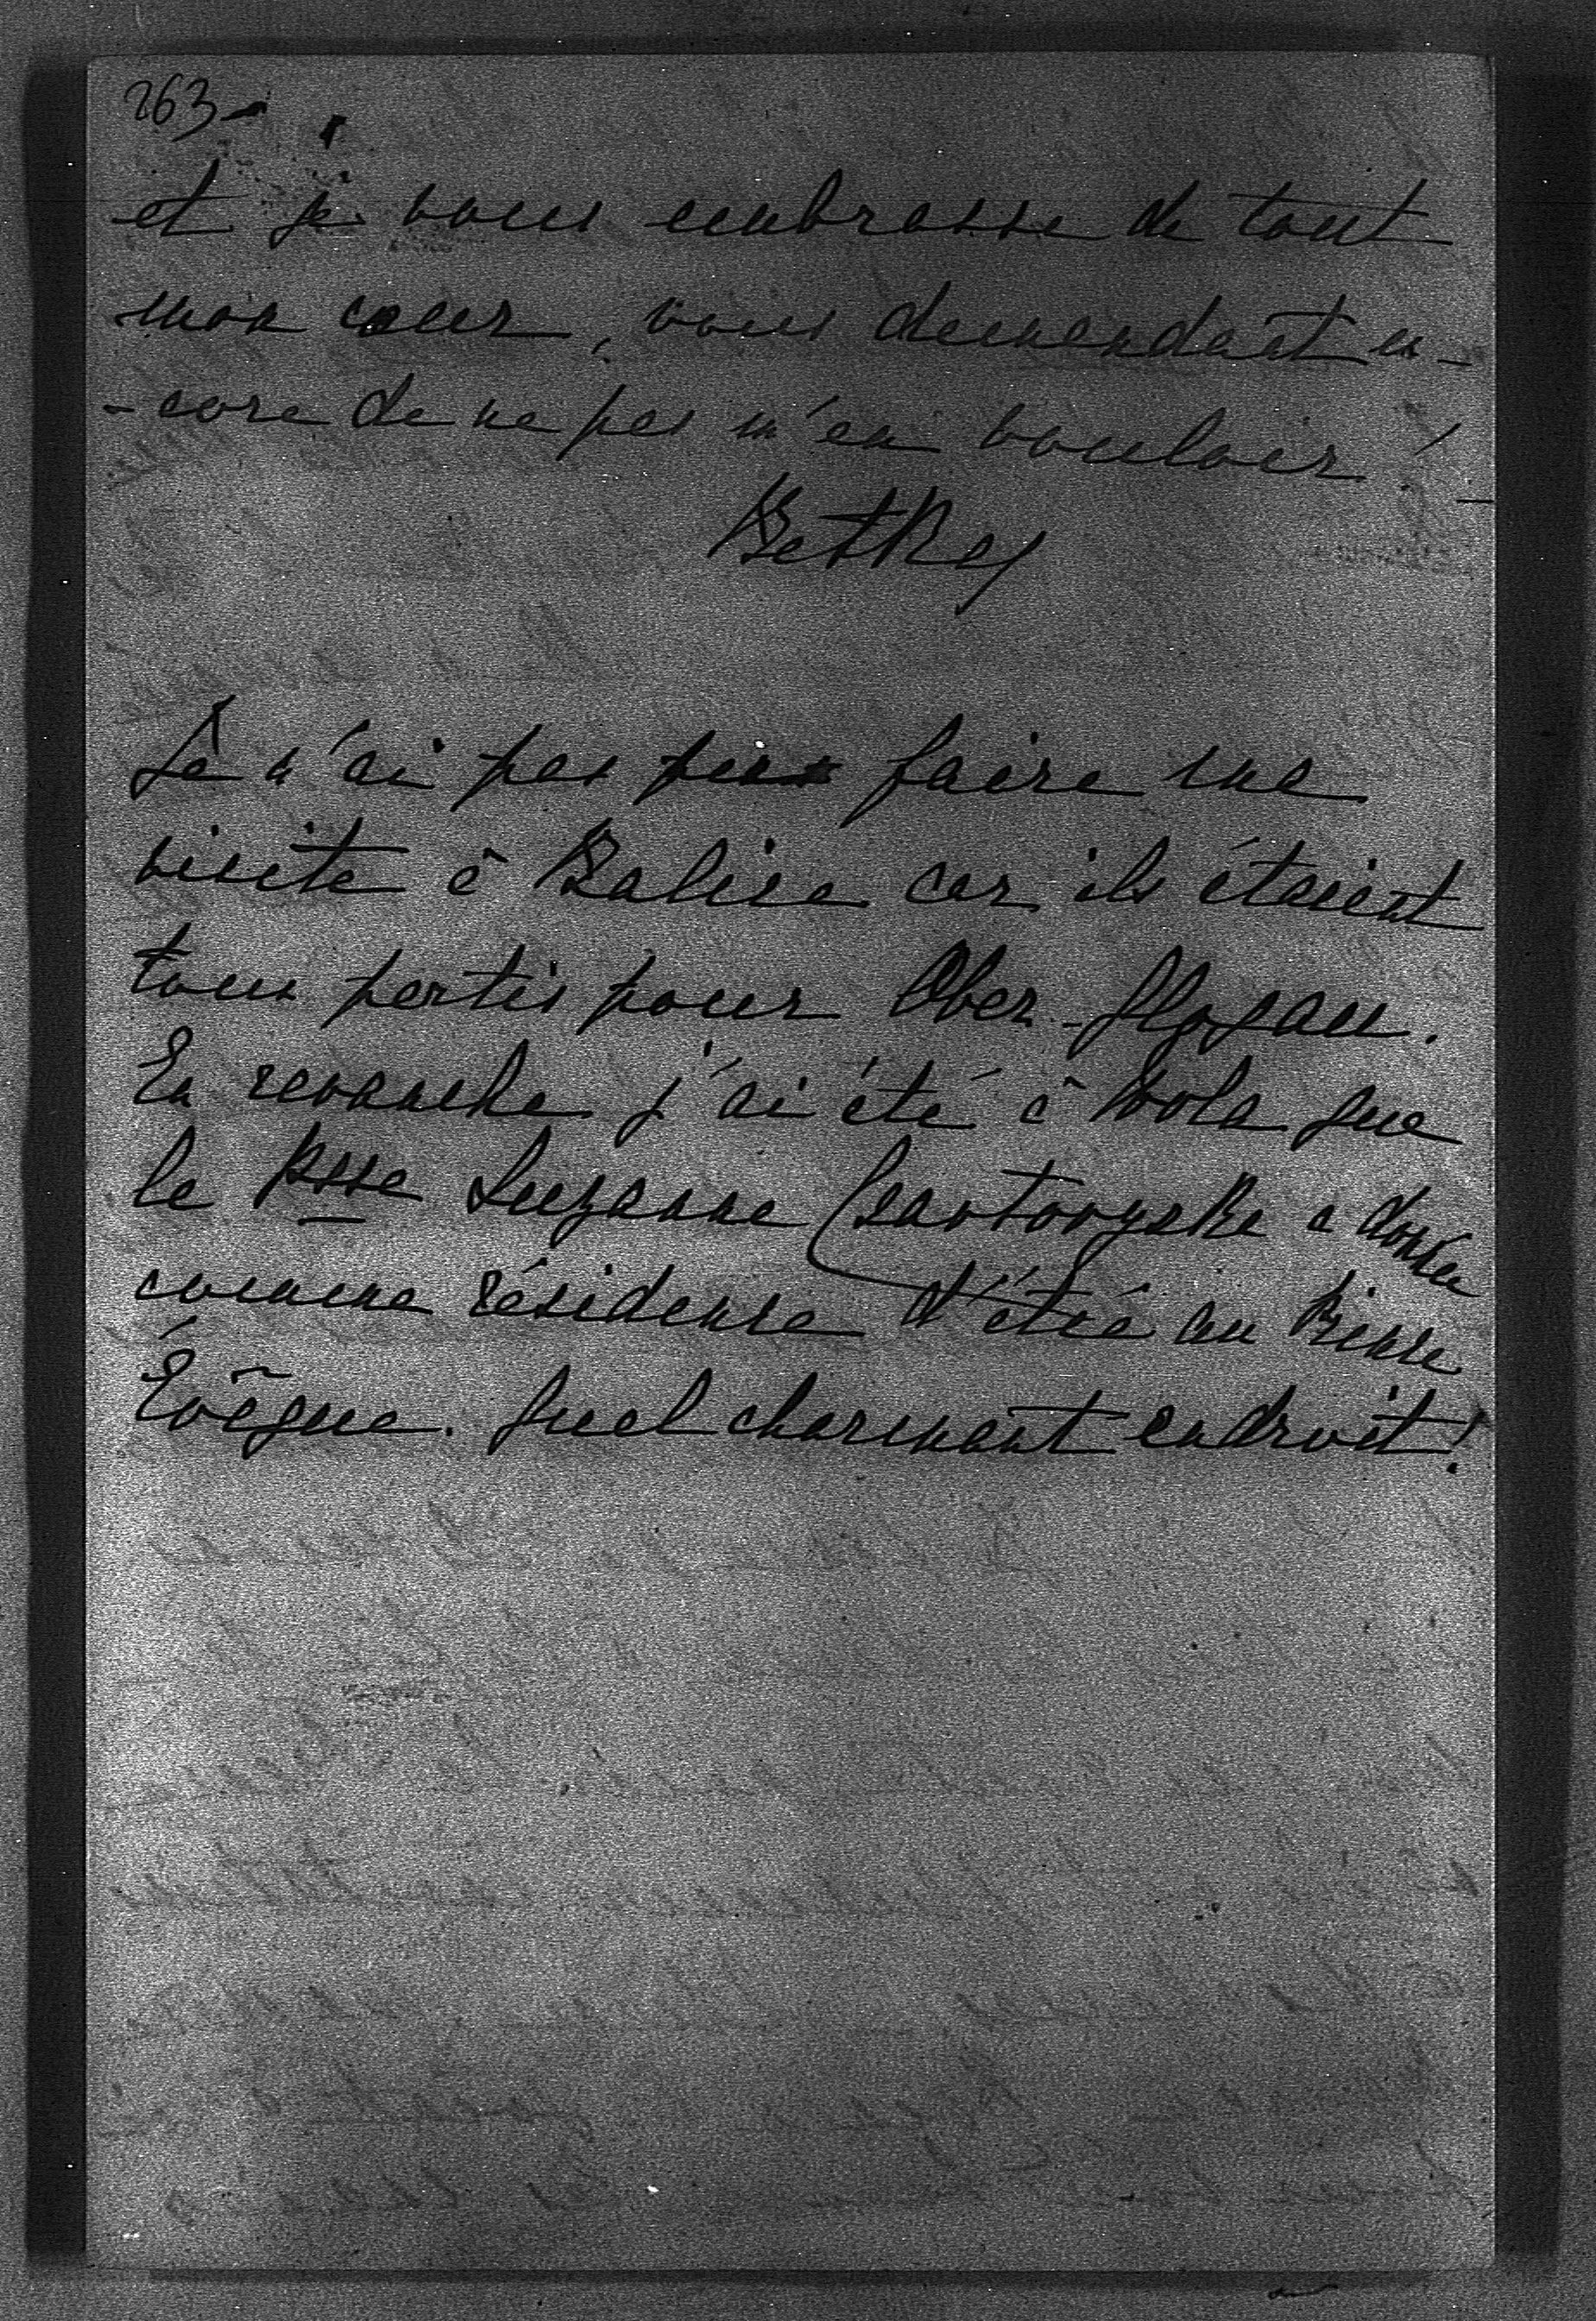 263-
et je vous embrasse de tout
mon cœur, vous demandant en-
-core de ne pas m'en vouloir!
Betka
Je n'ai pas pu faire une
visite à Balice car ils étaient
tous partis pour Ober-Glogau.
En revanche j'ai été à Wola que
la Psse Suzanne Czartoryska a donnée
comme résidence d'été au Prince
Évêque. Quel charmant endroit!